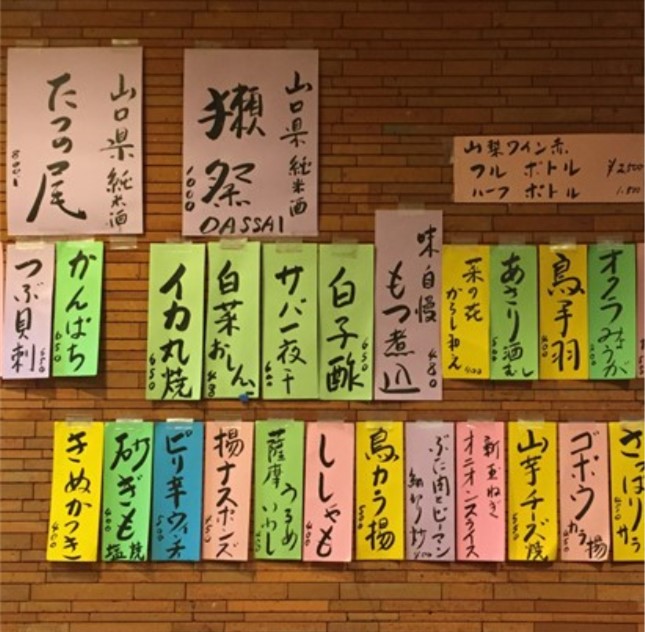 山口県 純米酒
たつの尾
800
山口県 純米酒
獺祭
1000
DASSAI
山梨ワイン赤
フル ボトル ¥2500
ハーフ ボトル
つぶ貝刺
650
かんぱち
650
イカ丸焼
650
白菜おしんこ
サバ一夜干
白子酢
650
味自慢
もつ煮込
480
菜の花
がらし和え
400
あさり酒むし
500
鳥手羽
400
オクラみょうが
きぬかつぎ
400
砂ぎも
塩焼
400
ピリ辛ウィンナ
揚ナスポンズ
450
薩摩
うるめ
いわし
ししゃも
400
鳥カラ揚
500
ぶた肉とピーマン
細切り炒
新玉ねぎ
オニオンスライス
山芋チーズ焼
ゴボウ
カラ揚
450
さっぱり
サラ